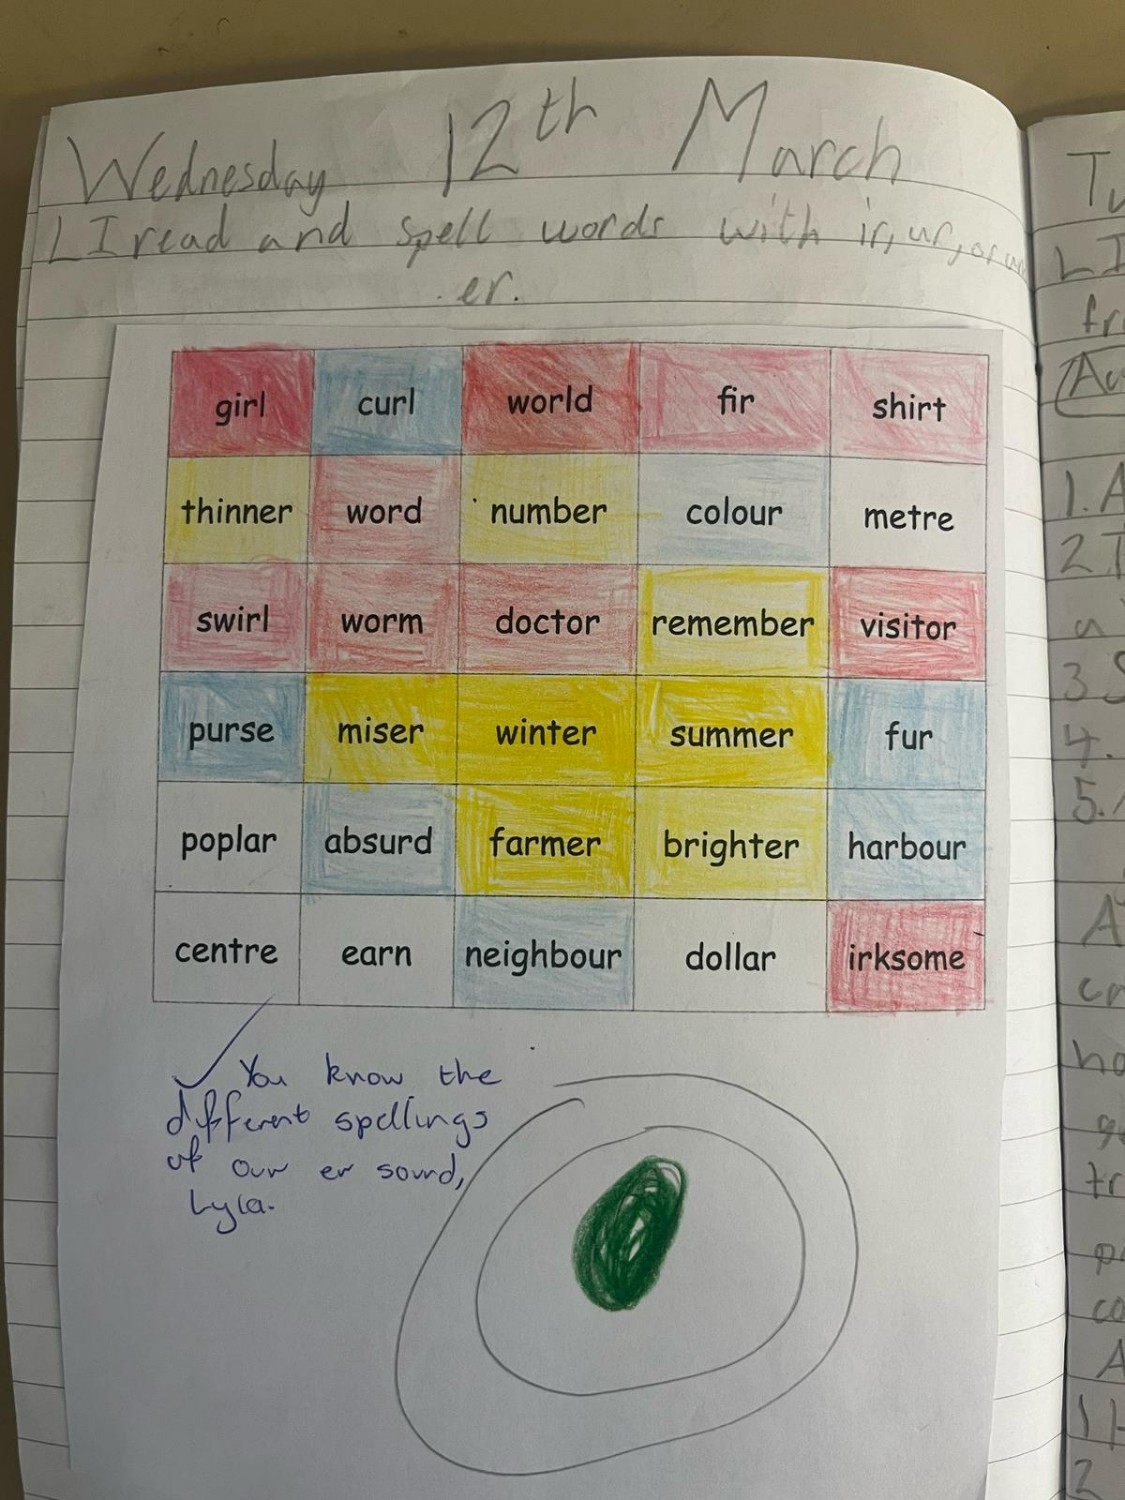 Wednesday 12th March
LI read and spell words with ir, ur, or
er.
girl curl world fir shirt
thinner word number colour metre
swirl worm doctor remember visitor
purse miser winter summer fur
poplar absurd farmer brighter harbour
centre earn neighbour dollar irksome
You know the
different spellings
of our er sound,
Lyla.
LI
1. A
2 T
a
3 S
4.
5.
A
tr
A
2